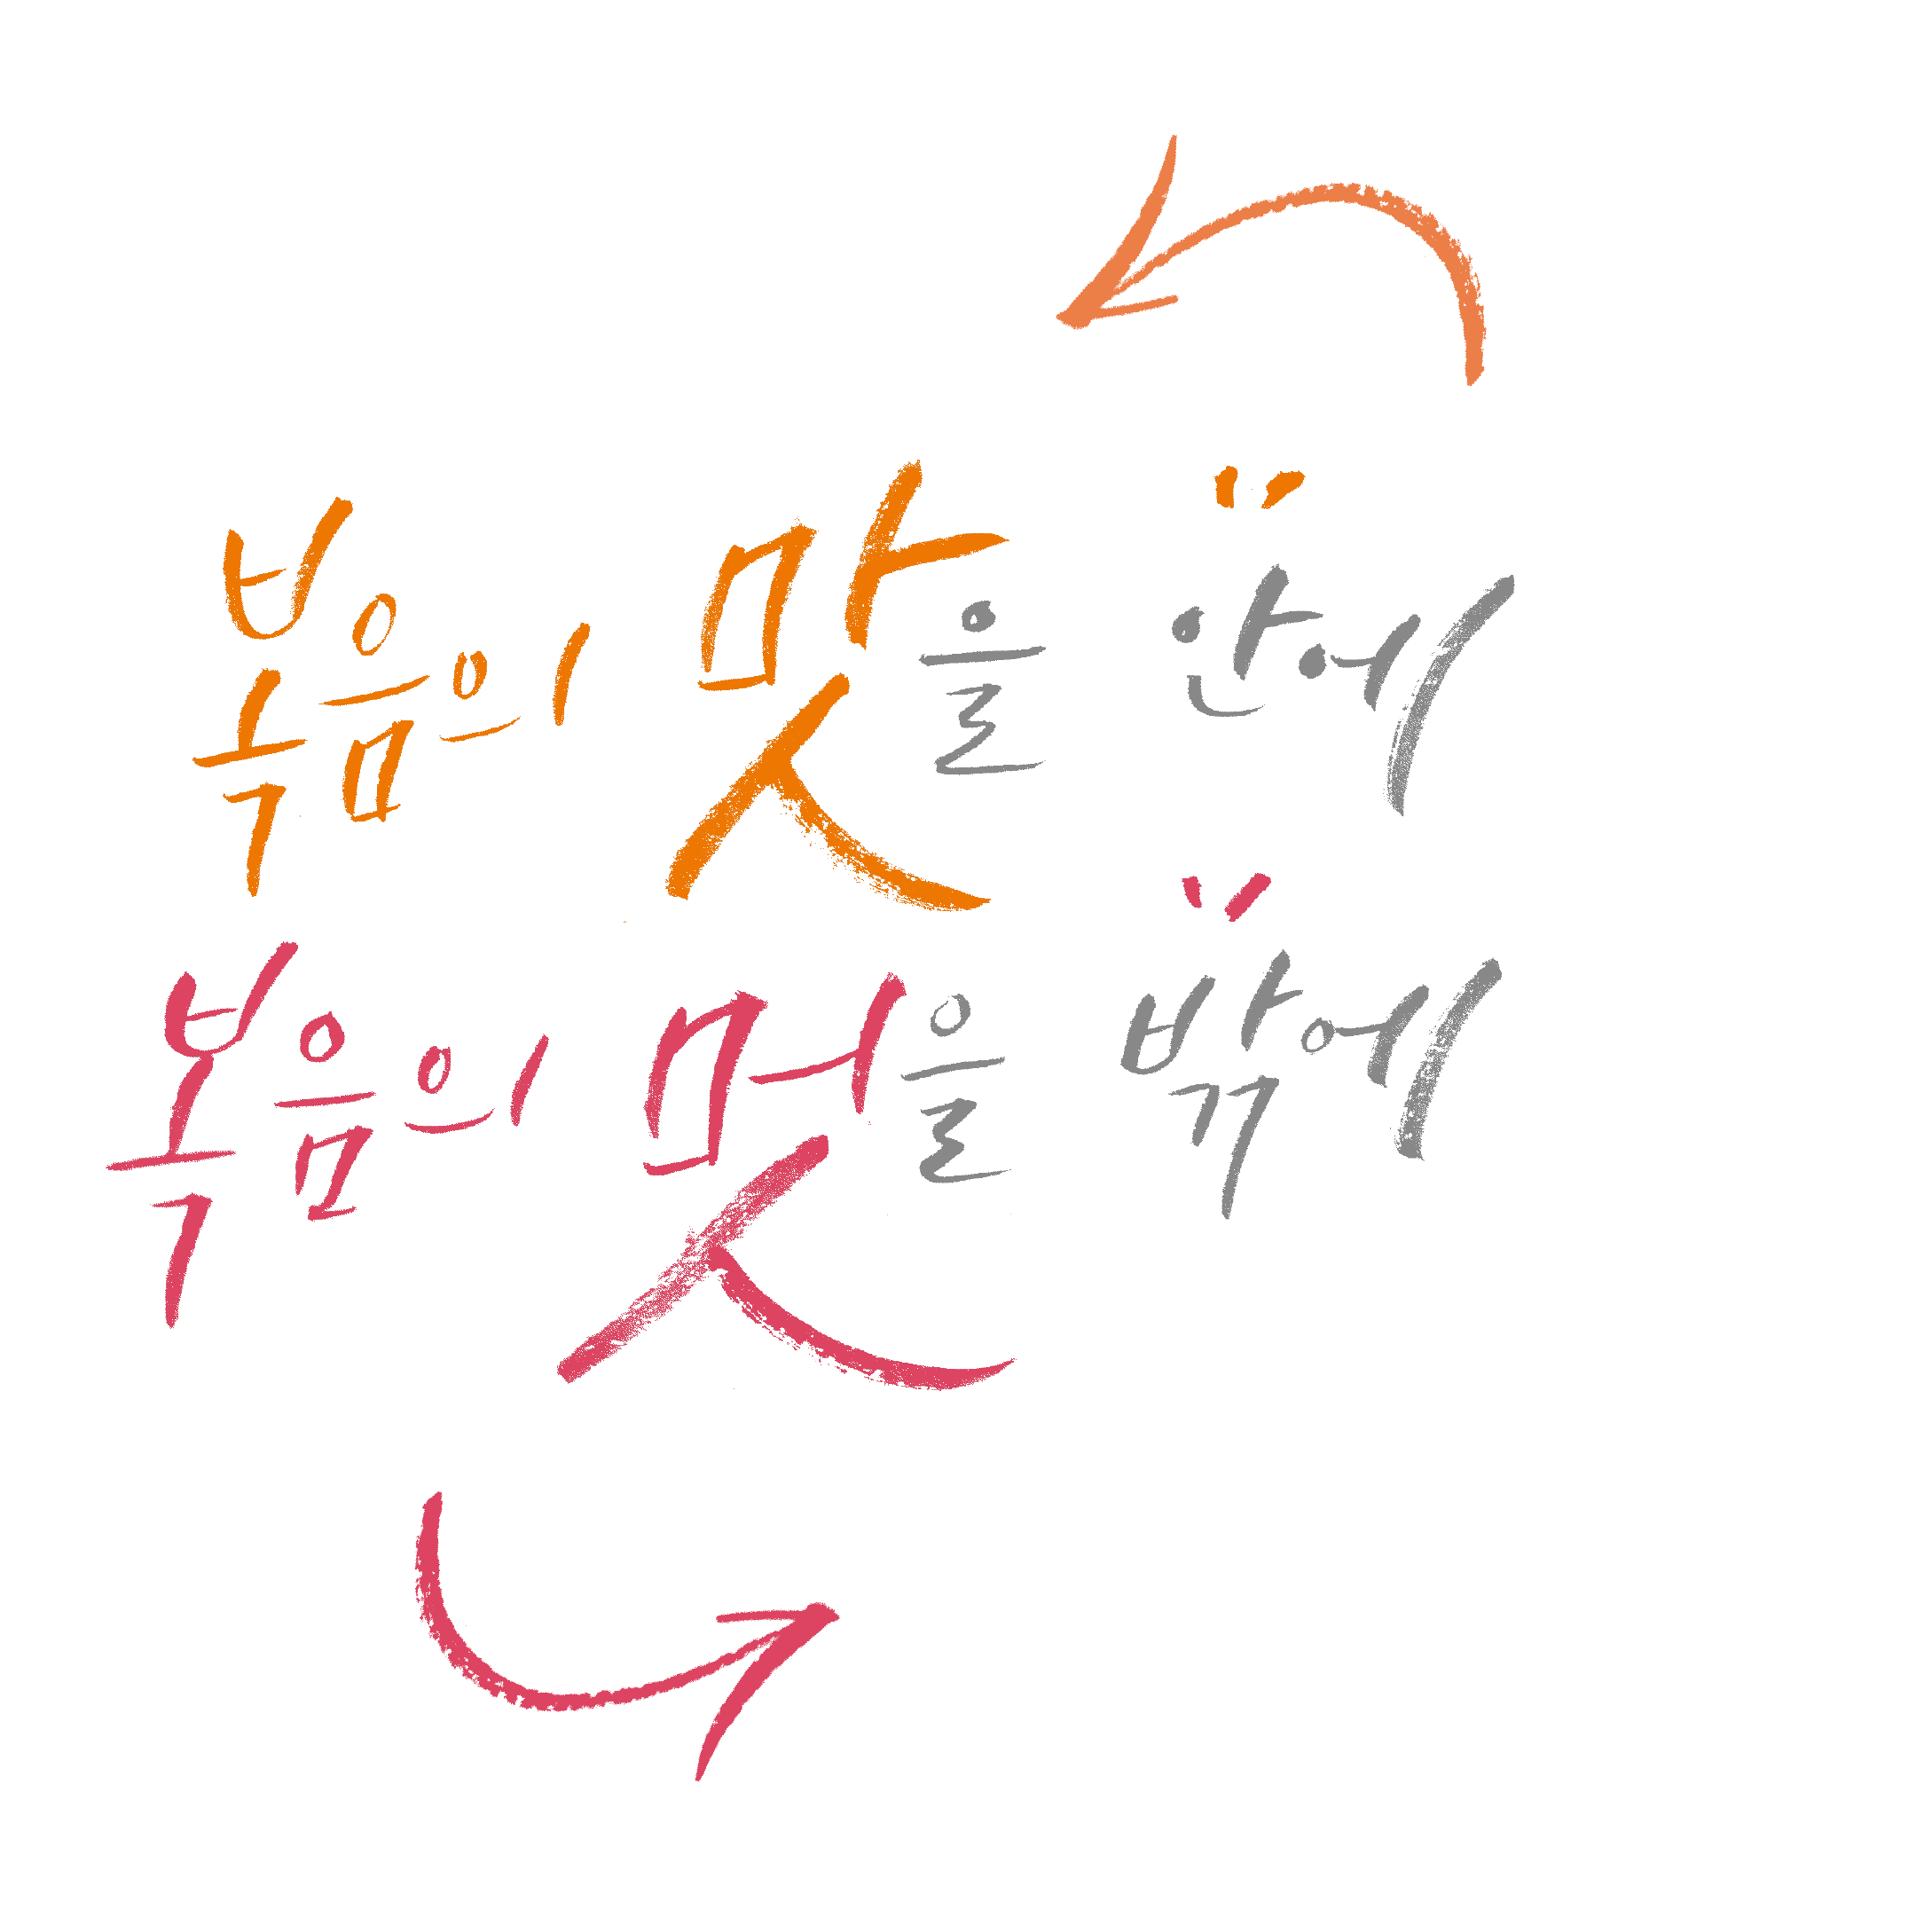 복음의 맛을 안에
복음의 멋을 밖에